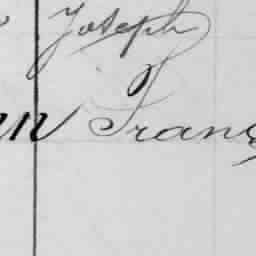 Joseph
nn Franç